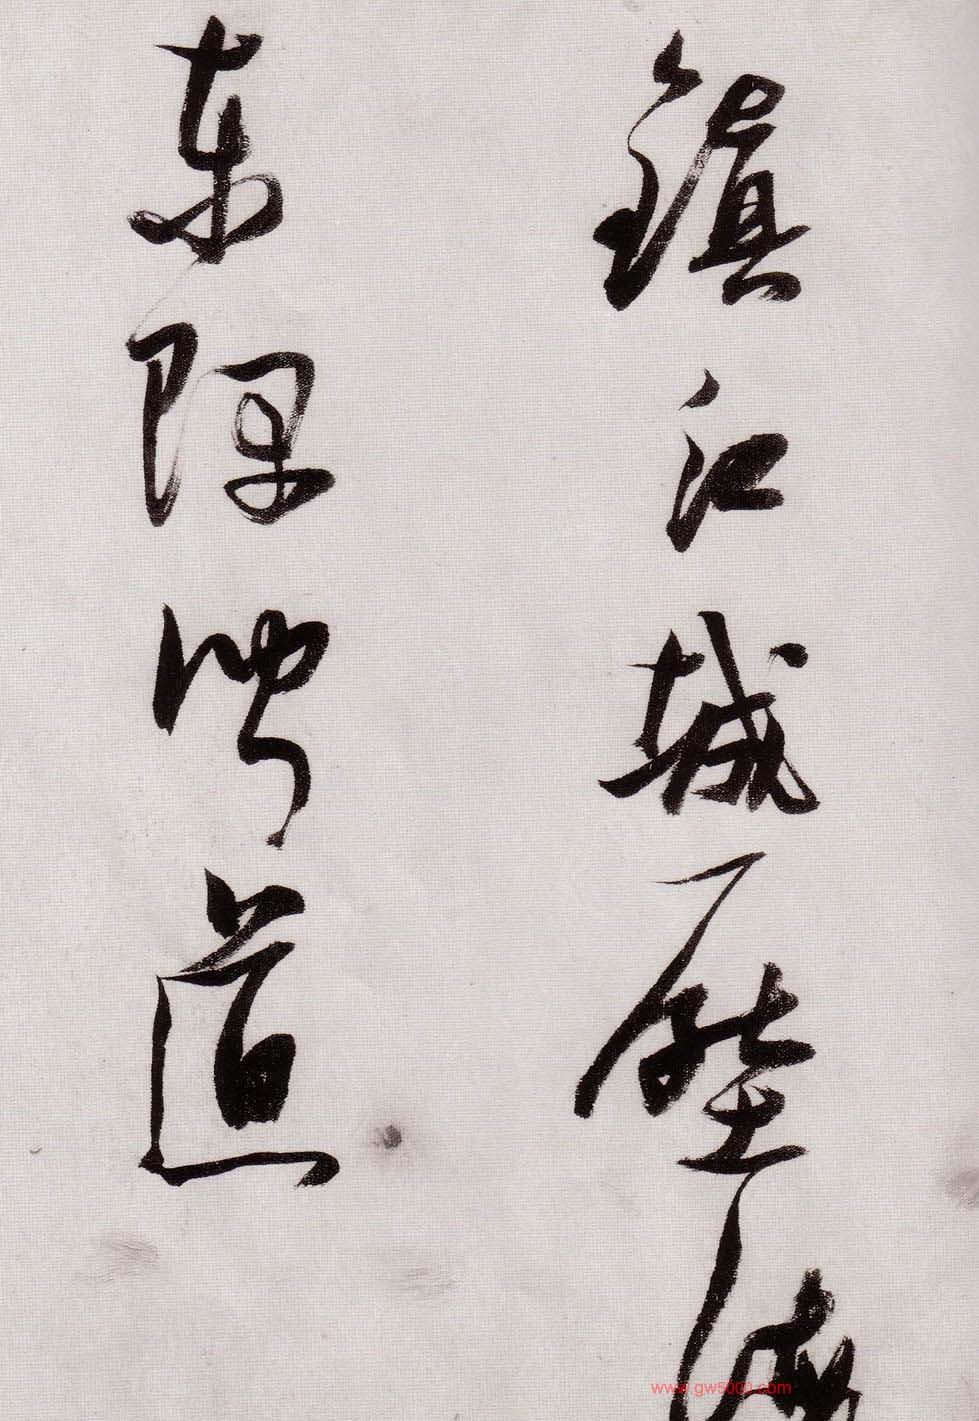 鎮江城壓海
東隅道
www.gw5000.com